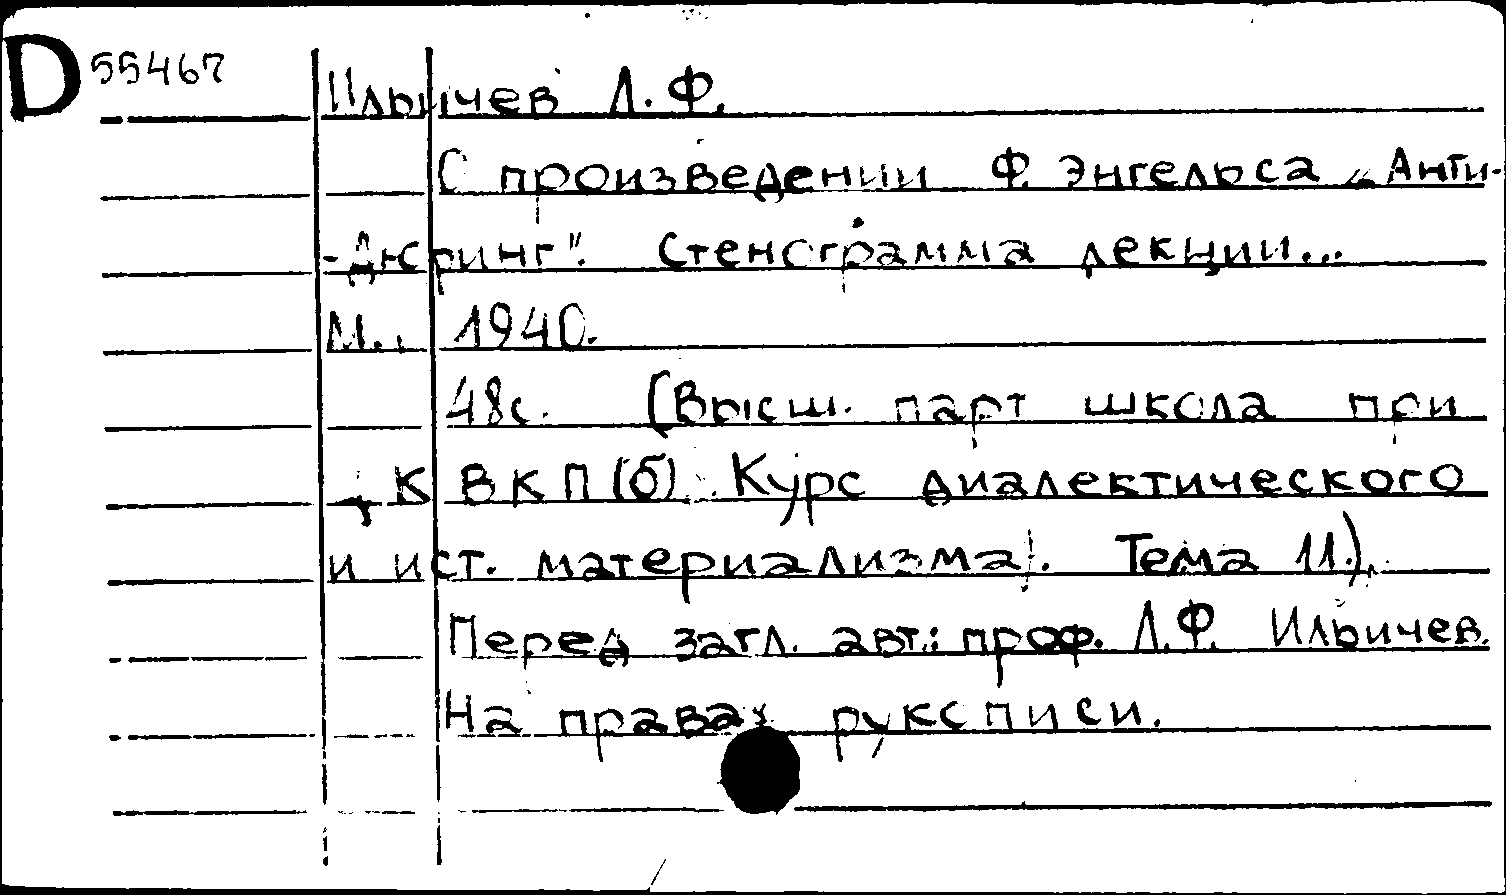 D 55467
Ильичев Л. Ф.
О произведении Ф. Энгельса „Анти-
-Дюринг". Стенограмма лекции...
М., 1940.
48с. (Высш. парт школа при
ЦК ВКП(б). Курс диалектического
и ист. материализма. Тема 11.).
Перед загл. авт.: проф. Л.Ф. Ильичев.
На правах рукописи.